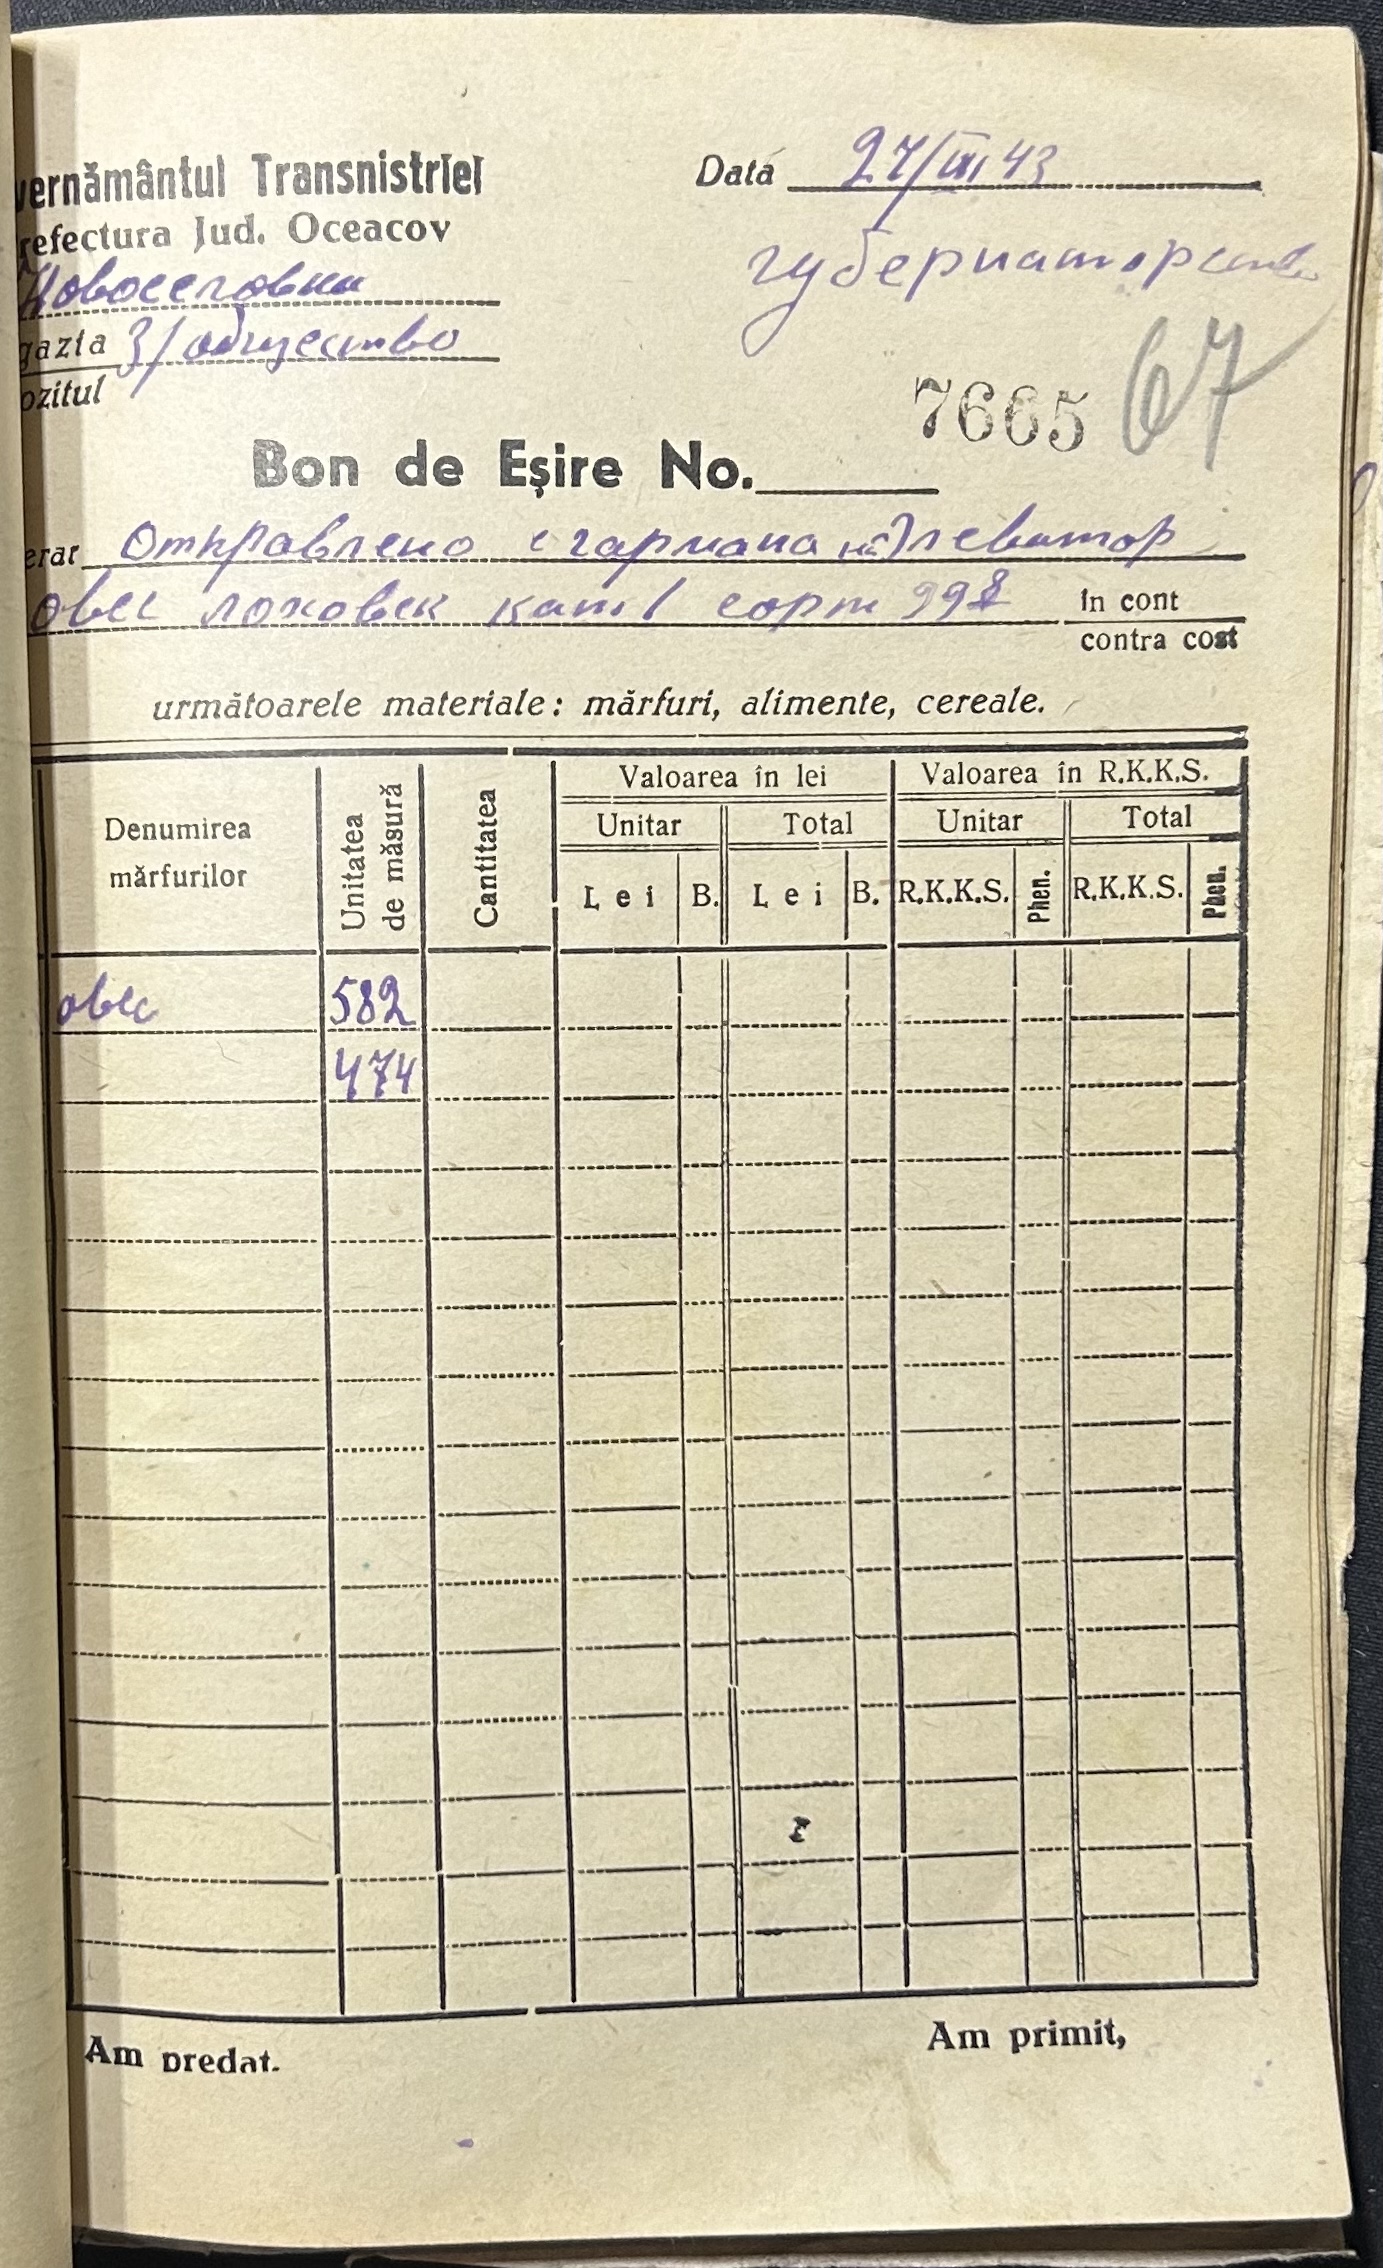 vernământul Transnistriei
Data 27/III 43
refectura Jud. Oceacov
Новоселовка
губернаторств
gazia 3/общество
ozitul
7665 67
Bon de Eşire No.
erar Отправлено с гармана на Элеватор
овес кат. 1 сорт 99 în cont
contra cost
următoarele materiale: mărfuri, alimente, cereale.
Denumirea mărfurilor Unitatea de măsură Cantitatea Valoarea în lei Valoarea în R.K.K.S.
Unitar Total Unitar Total
Lei B. Lei B. R.K.K.S. Phen. R.K.K.S. Phen.
овес 582
474
Am predat.
Am primit,